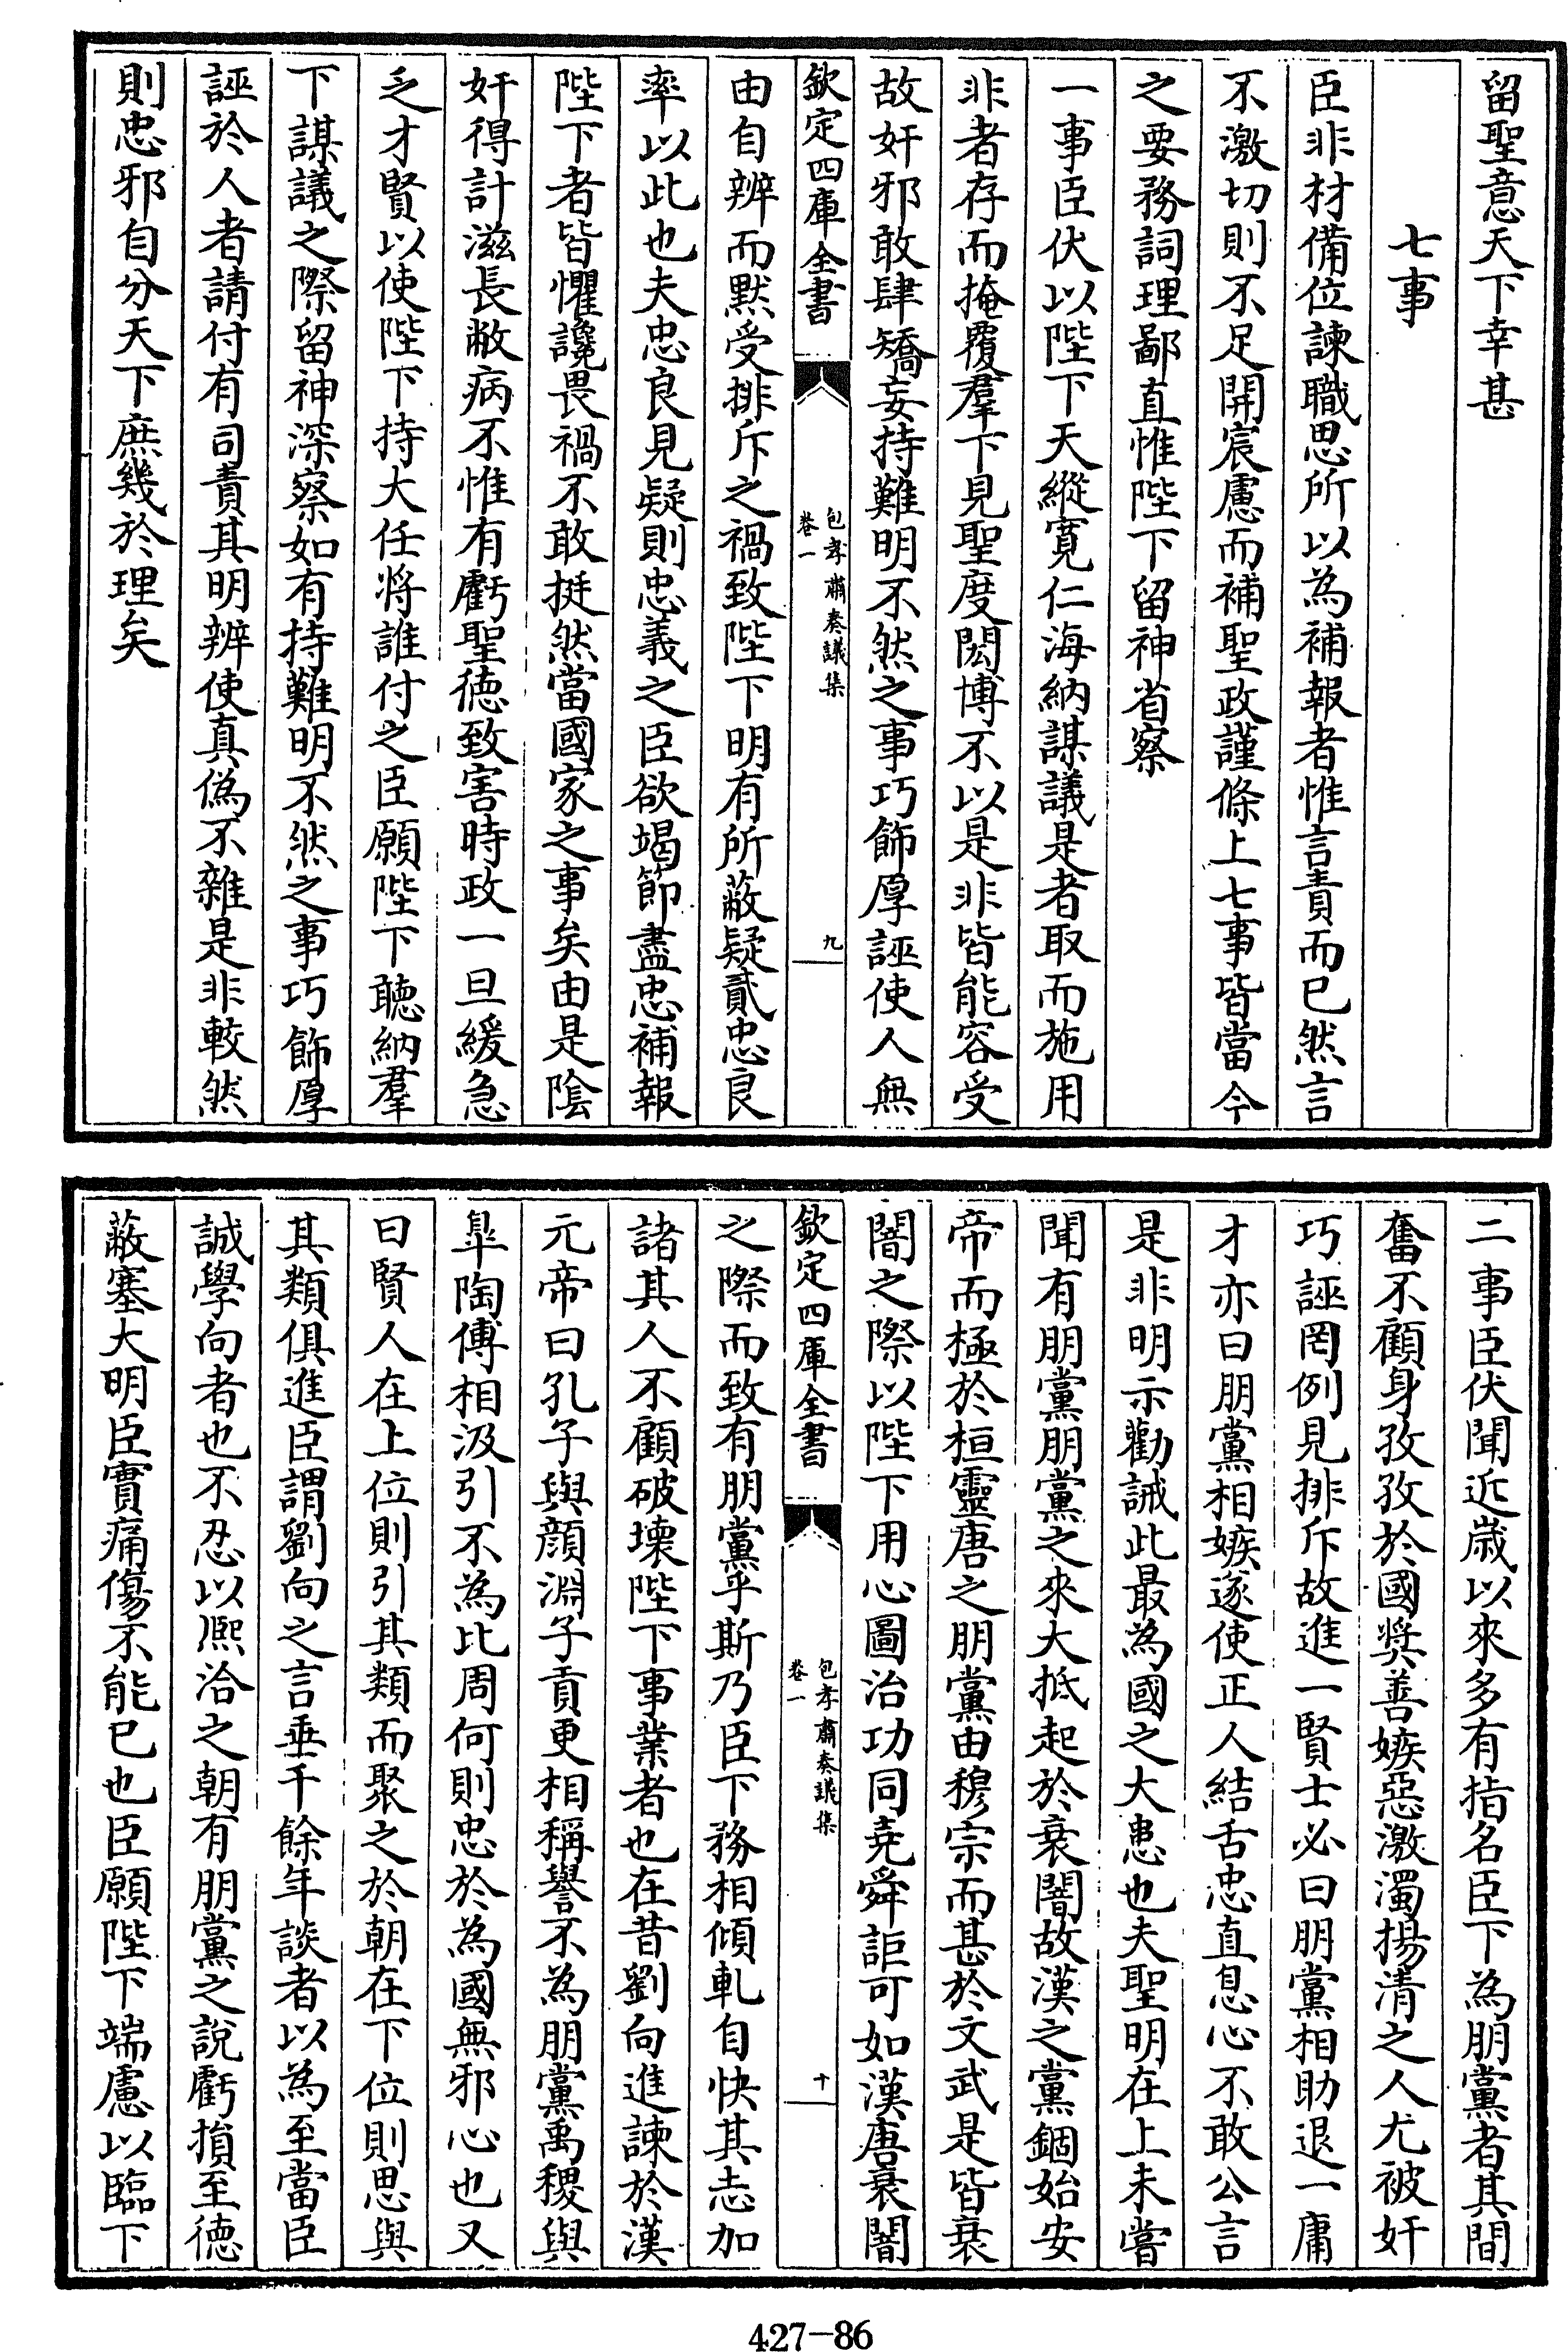 留聖意天下幸甚
七事
臣非材備位諫職思所以為補報者惟言責而已然言
不激切則不足開宸慮而補聖政謹條上七事皆當今
之要務詞理鄙直惟陛下留神省察
一事臣伏以陛下天縱寛仁海納謀議是者取而施用
非者存而掩覆羣下見聖度閎博不以是非皆能容受
故奸邪敢肆矯妄持難明不然之事巧飾厚誣使人無
欽定四庫全書
包孝肅奏議集
卷一
九
由自辨而默受排斥之禍致陛下明有所蔽疑貳忠良
率以此也夫忠良見疑則忠義之臣欲竭節盡忠補報
陛下者皆懼讒畏禍不敢挺然當國家之事矣由是陰
奸得計滋長敝病不惟有虧聖徳致害時政一旦緩急
乏才賢以使陛下持大任将誰付之臣願陛下聽納羣
下謀議之際留神深察如有持難明不然之事巧飾厚
誣於人者請付有司責其明辨使真偽不雜是非較然
則忠邪自分天下庶幾於理矣
二事臣伏聞近歳以來多有指名臣下為朋黨者其間
奮不顧身孜孜於國奬善嫉惡激濁揚清之人尤被奸
巧誣罔例見排斥故進一賢士必曰朋黨相助退一庸
才亦曰朋黨相嫉遂使正人結舌忠直息心不敢公言
是非明示勸誡此最為國之大患也夫聖明在上未嘗
聞有朋黨朋黨之來大抵起於衰闇故漢之黨錮始安
帝而極於桓靈唐之朋黨由穆宗而甚於文武是皆衰
闇之際以陛下用心圖治功同堯舜詎可如漢唐衰闇
欽定四庫全書
包孝肅奏議集
卷一
十
之際而致有朋黨乎斯乃臣下務相傾軋自快其志加
諸其人不顧破壊陛下事業者也在昔劉向進諫於漢
元帝曰孔子與顔淵子貢更相稱譽不為朋黨禹稷與
臯陶傅相汲引不為比周何則忠於為國無邪心也又
曰賢人在上位則引其類而聚之於朝在下位則思與
其類俱進臣謂劉向之言垂千餘年談者以為至當臣
誠學向者也不忍以熈洽之朝有朋黨之說虧損至徳
蔽塞大明臣實痛傷不能已也臣願陛下端慮以臨下
427—86